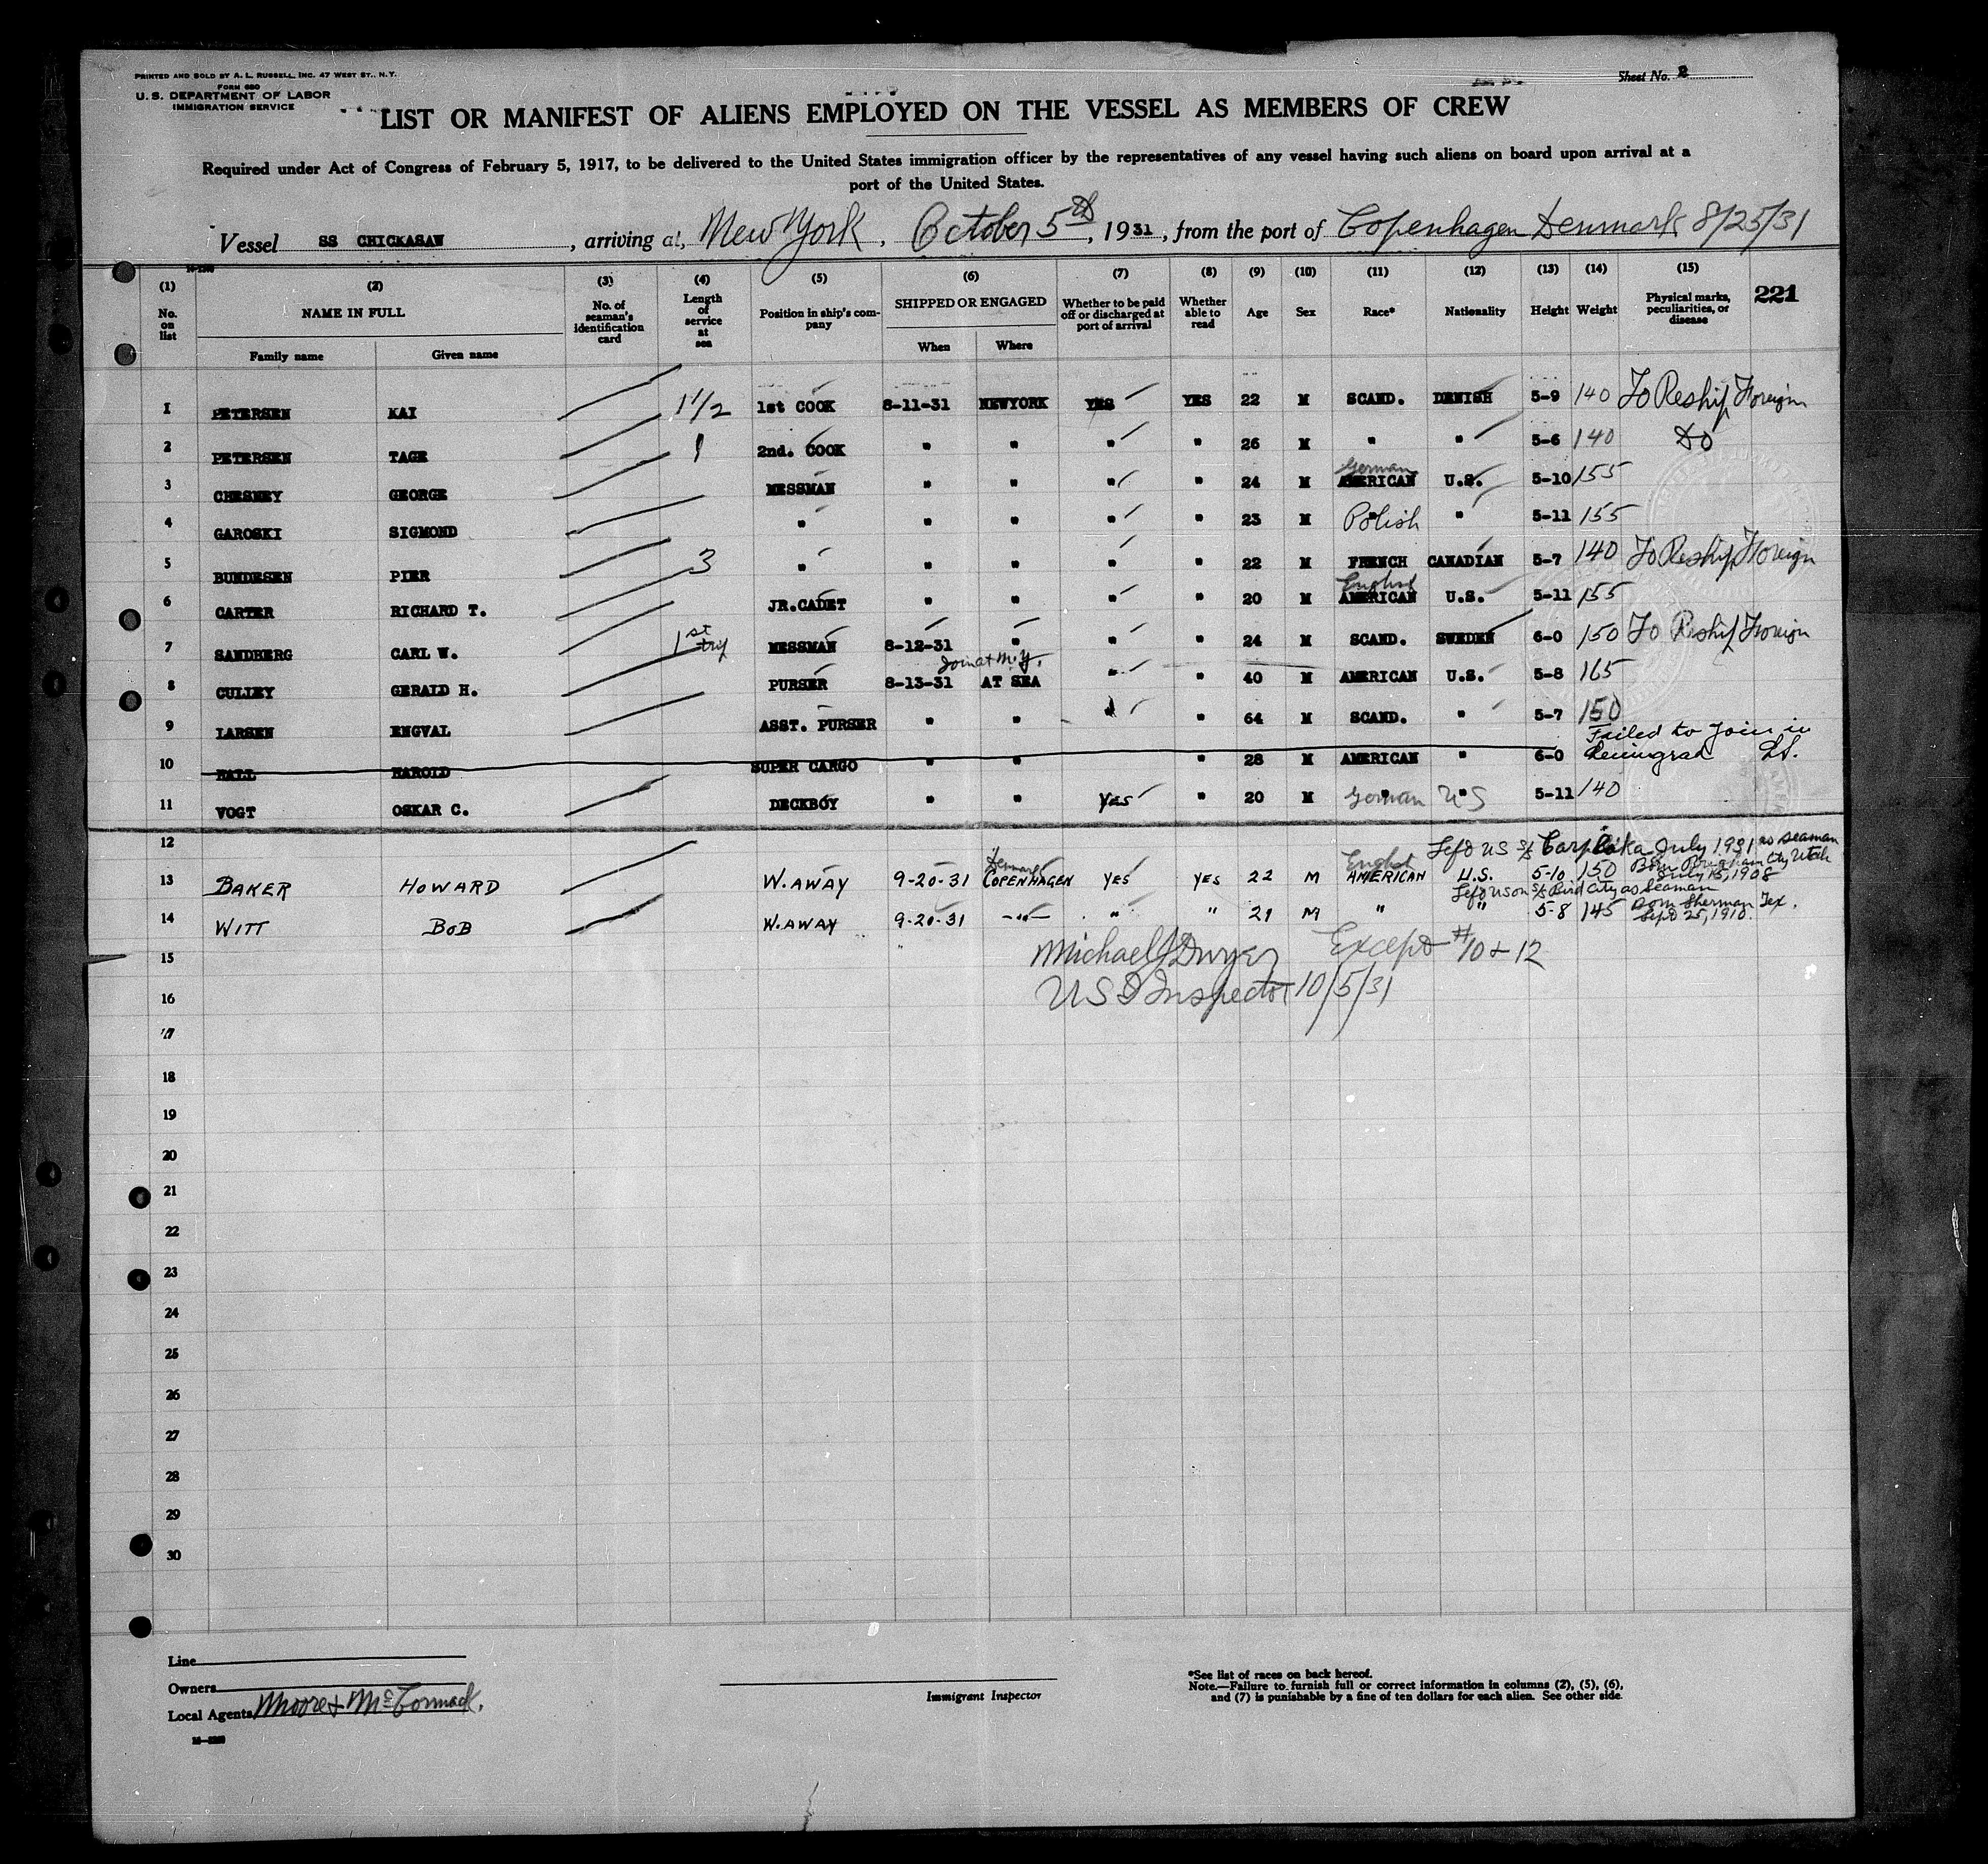 PRINTED AND SOLD BY A. L. RUSSELL, INC. 47 WEST ST., N.Y.
FORM 680
U. S. DEPARTMENT OF LABOR
IMMIGRATION SERVICE
Sheet No. 2
LIST OR MANIFEST OF ALIENS EMPLOYED ON THE VESSEL AS MEMBERS OF CREW
Required under Act of Congress of February 5, 1917, to be delivered to the United States immigration officer by the representatives of any vessel having such aliens on board upon arrival at a
port of the United States.
Vessel SS CHICKASAW, arriving at, New York, October 5th, 1931, from the port of Copenhagen Denmark 8/25/31
(1) (2) (3) (4) (5) (6) (7) (8) (9) (10) (11) (12) (13) (14) (15)
No. on list NAME IN FULL Family name Given name No. of seaman's identification card Length of service at sea Position in ship's company SHIPPED OR ENGAGED When Where Whether to be paid off or discharged at port of arrival Whether able to read Age Sex Race* Nationality Height Weight Physical marks, peculiarities, or disease 221
1 PETERSEN KAI 1 1/2 1st COOK 8-11-31 NEWYORK YES YES 22 M SCAND. DENISH 5-9 140 To Reship Foreign
2 PETERSEN TAGE 1 2nd. COOK " " " " 26 M " " 5-6 140 Do
German
3 CHESNEY GEORGE MESSMAN " " " " 24 M AMERICAN U.S. 5-10 155
4 GAROSKI SIGMOND " " " " " 23 M Polish " 5-11 155
5 BUNDESEN PIER 3 " " " " " 22 M FRENCH CANADIAN 5-7 140 To Reship Foreign
English
6 CARTER RICHARD T. JR.CADET " " " " 20 M AMERICAN U.S. 5-11 155
7 SANDBERG CARL W. 1st trip MESSMAN 8-12-31 " " " 24 M SCAND. SWEDEN 6-0 150 To Reship Foreign
Join at N.Y.
8 CULLEY GERALD H. PURSER 8-13-31 AT SEA " " 40 M AMERICAN U.S. 5-8 165
9 LARSEN ENGVAL ASST. PURSER " " " 64 M SCAND. " 5-7 150
Failed to join in
10 HALL HAROLD SUPER CARGO " " " 28 M AMERICAN " 6-0 Leningrad
11 VOGT OSKAR C. DECKBOY " " Yes " 20 M German US 5-11 140
12 Left US July 1931 as seaman
Denmark English Born Brigham City Utah
13 BAKER HOWARD W. AWAY 9-20-31 COPENHAGEN YES YES 22 M AMERICAN U.S. 5-10 150 July 15, 1908
Left US on S/S Bird City as Seaman
14 WITT BOB W. AWAY 9-20-31 -"- " " 21 M " " 5-8 145 Born Sherman Tex. Sept 25, 1910.
15 Michael J Dwyer Except #10 + 12
16 US I Inspector 10/5/31
17
18
19
20
21
22
23
24
25
26
27
28
29
30
Line
Owners
Local Agents Moore & McCormack.
Immigrant Inspector
*See list of races on back hereof.
Note.—Failure to furnish full or correct information in columns (2), (5), (6),
and (7) is punishable by a fine of ten dollars for each alien. See other side.